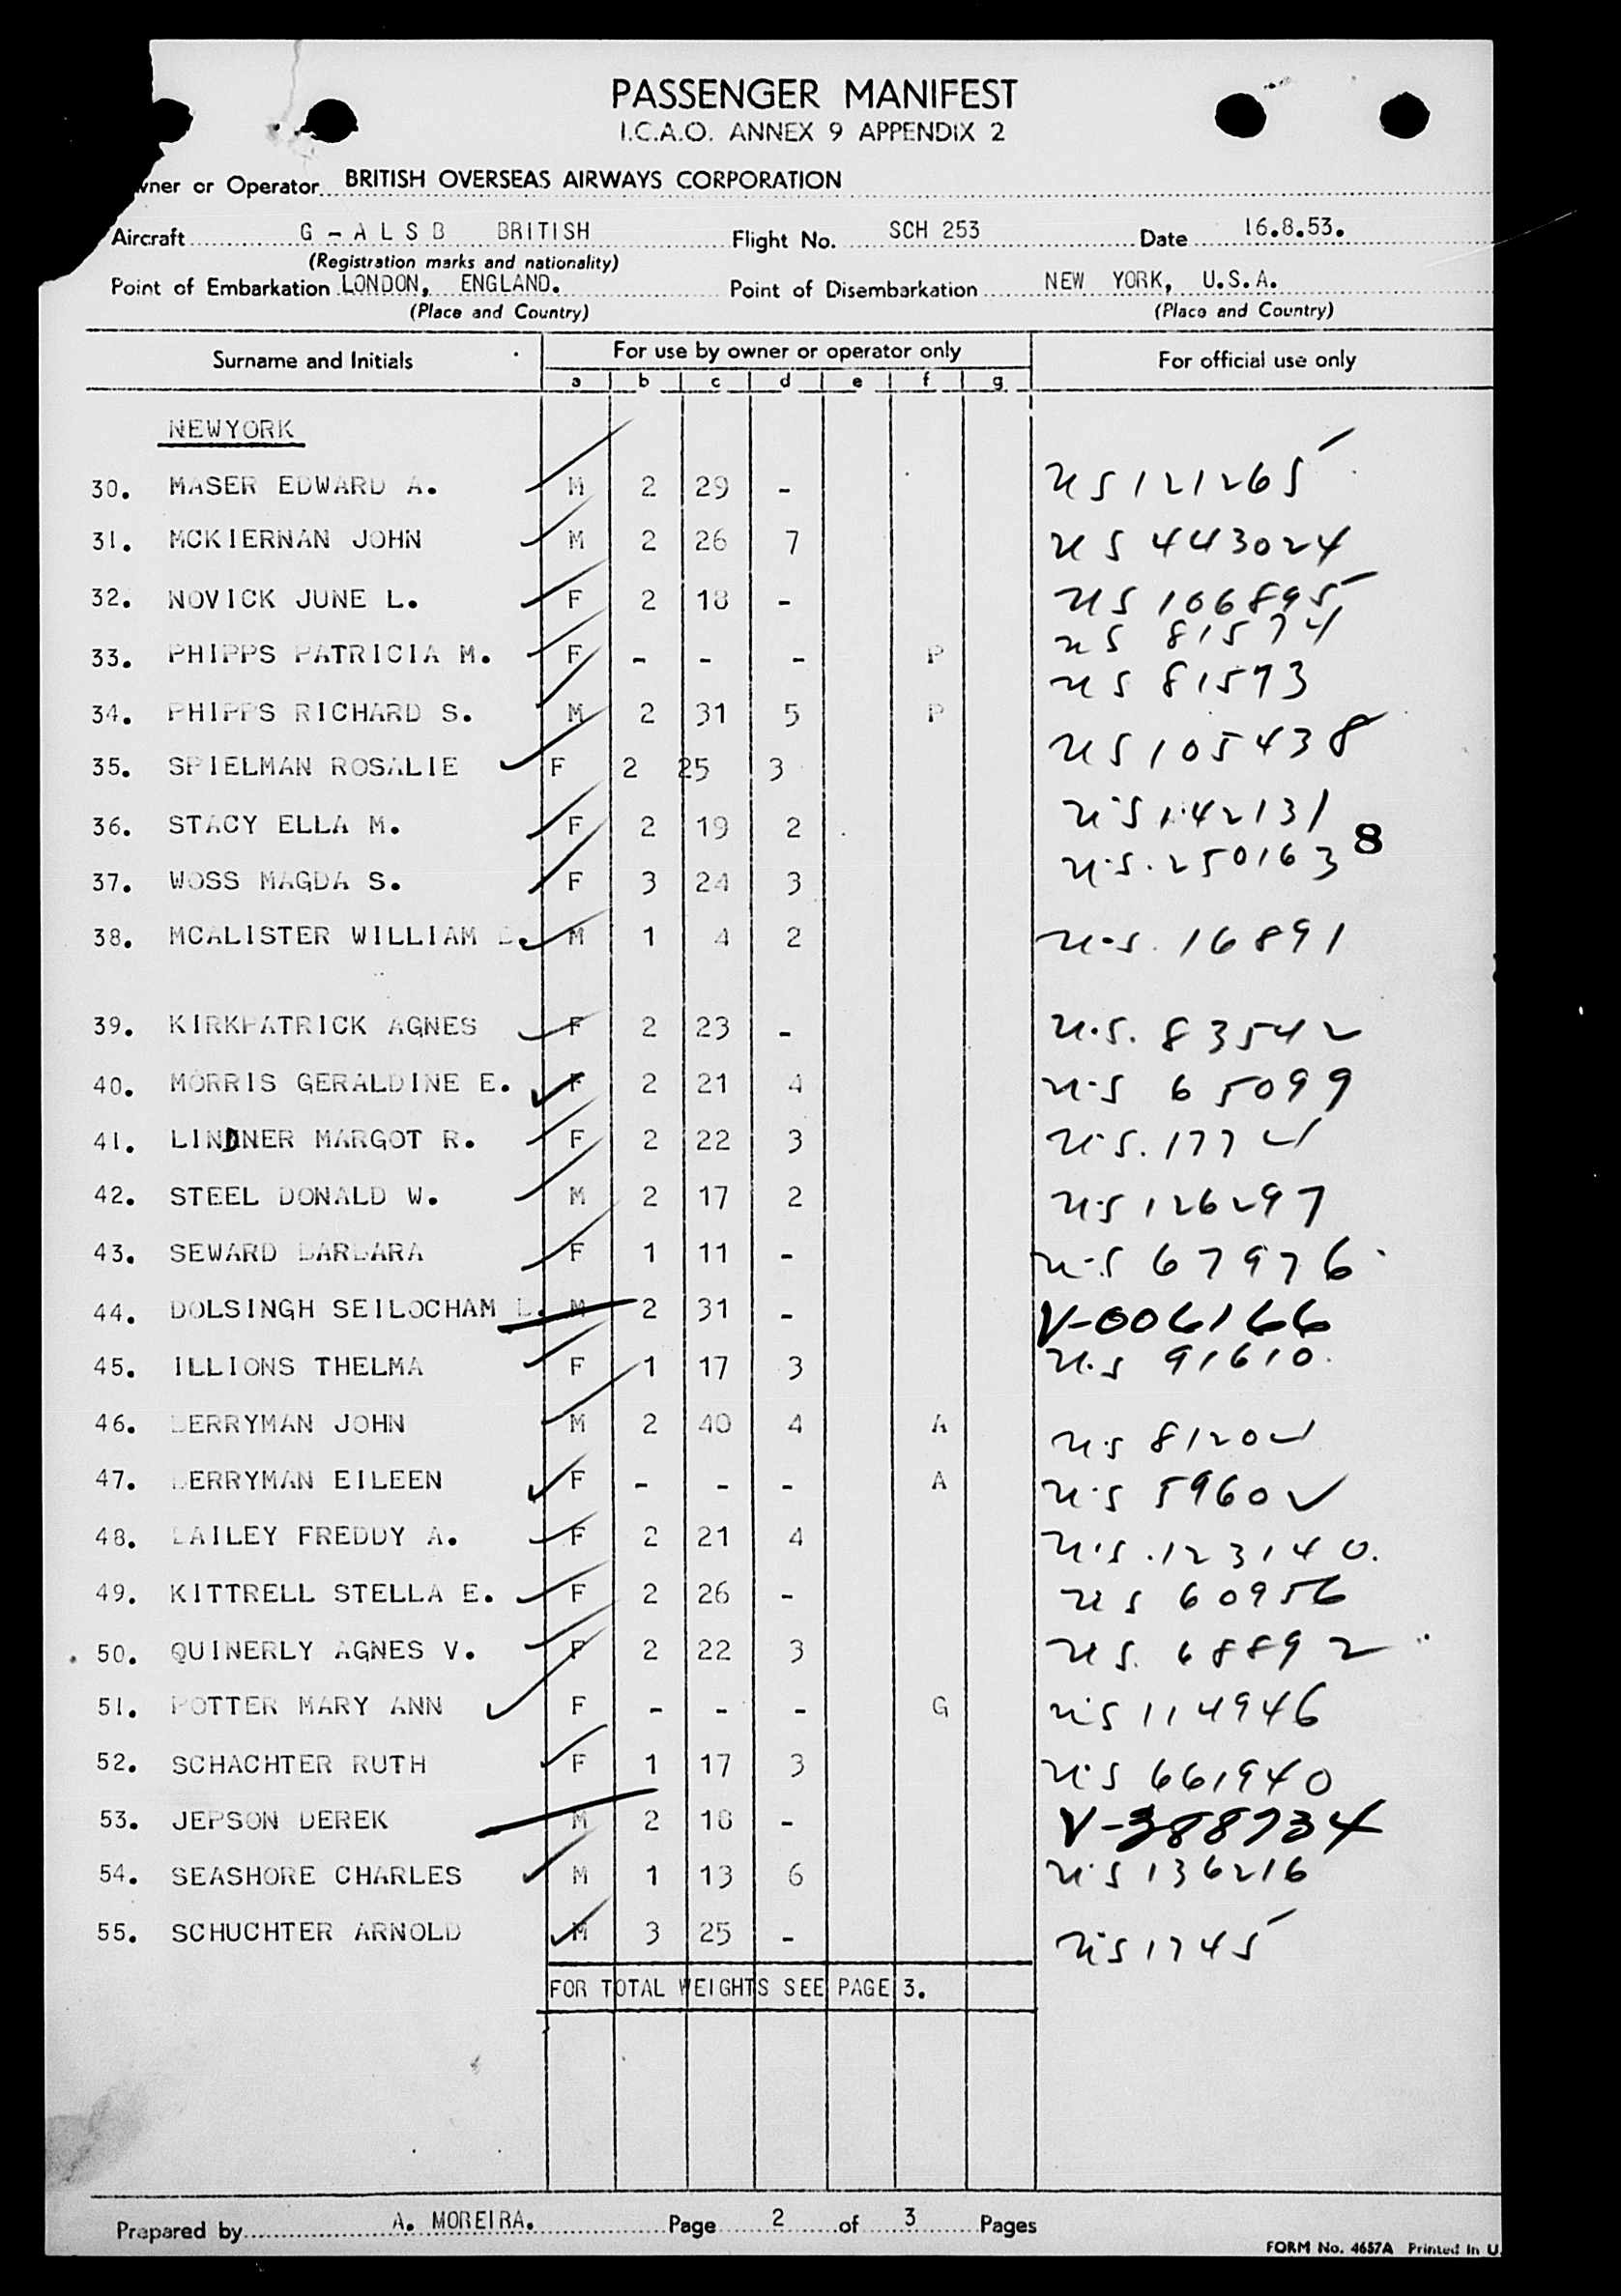 PASSENGER MANIFEST
I.C.A.O. ANNEX 9 APPENDIX 2
wner or Operator BRITISH OVERSEAS AIRWAYS CORPORATION
Aircraft G - A L S B BRITISH Flight No. SCH 253 Date 16.8.53.
(Registration marks and nationality)
Point of Embarkation LONDON, ENGLAND. Point of Disembarkation NEW YORK, U.S.A.
(Place and Country) (Place and Country)
Surname and Initials For use by owner or operator only For official use only
a b c d e f g
NEWYORK
30. MASER EDWARD A. M 2 29 - US 121265
31. MCKIERNAN JOHN M 2 26 7 US 443024
32. NOVICK JUNE L. F 2 18 - US 106895
33. PHIPPS PATRICIA M. F - - - P US 81574
34. PHIPPS RICHARD S. M 2 31 5 P US 81573
35. SPIELMAN ROSALIE F 2 25 3 US 105438
36. STACY ELLA M. F 2 19 2 U.S 142131
37. WOSS MAGDA S. F 3 24 3 U.S. 250163 8
38. MCALISTER WILLIAM M 1 4 2 U.S. 16891
39. KIRKPATRICK AGNES F 2 23 - U.S. 83542
40. MORRIS GERALDINE E. F 2 21 4 U.S 65099
41. LINDNER MARGOT R. F 2 22 3 U.S. 1774
42. STEEL DONALD W. M 2 17 2 U.S 126297
43. SEWARD BARBARA F 1 11 - U.S 67976
44. DOLSINGH SEILOCHAM M 2 31 - V-006166
45. ILLIONS THELMA F 1 17 3 U.S 91610
46. BERRYMAN JOHN M 2 40 4 A U.S 81204
47. BERRYMAN EILEEN F - - - A U.S 59602
48. BAILEY FREDDY A. F 2 21 4 U.S. 123140.
49. KITTRELL STELLA E. F 2 26 - US 60956
50. QUINERLY AGNES V. F 2 22 3 US. 68892
51. POTTER MARY ANN F - - - G U.S 114946
52. SCHACHTER RUTH F 1 17 3 U.S 661940
53. JEPSON DEREK M 2 18 - V-388734
54. SEASHORE CHARLES M 1 13 6 U.S 136216
55. SCHUCHTER ARNOLD M 3 25 - U.S 1745
FOR TOTAL WEIGHTS SEE PAGE 3.
Prepared by A. MOREIRA. Page 2 of 3 Pages
FORM No. 4657A Printed in U